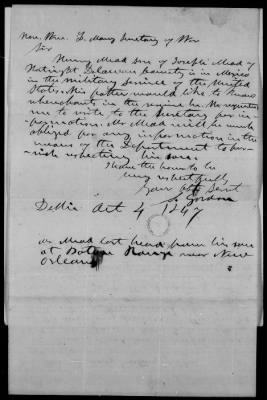 Hon. Wm. L. Marcy Secretary of War
Sir
Henry Mead son of Joseph Mead of
Delaware County is in Mexico
in the military service of the United
States. His father would like to know
whereabouts in the service he. He requests
me to write to the Secretary for in-
formation. Mr Mead will be much
obliged for any information in the
means of the Department to fur-
nish respecting his son.
I have the honor to be
very respectfully
Your Obt Servt
S Gordon
Delhi Oct 4 1847
Mr Mead last heard from his son
at Baton Rouge near New
Orleans